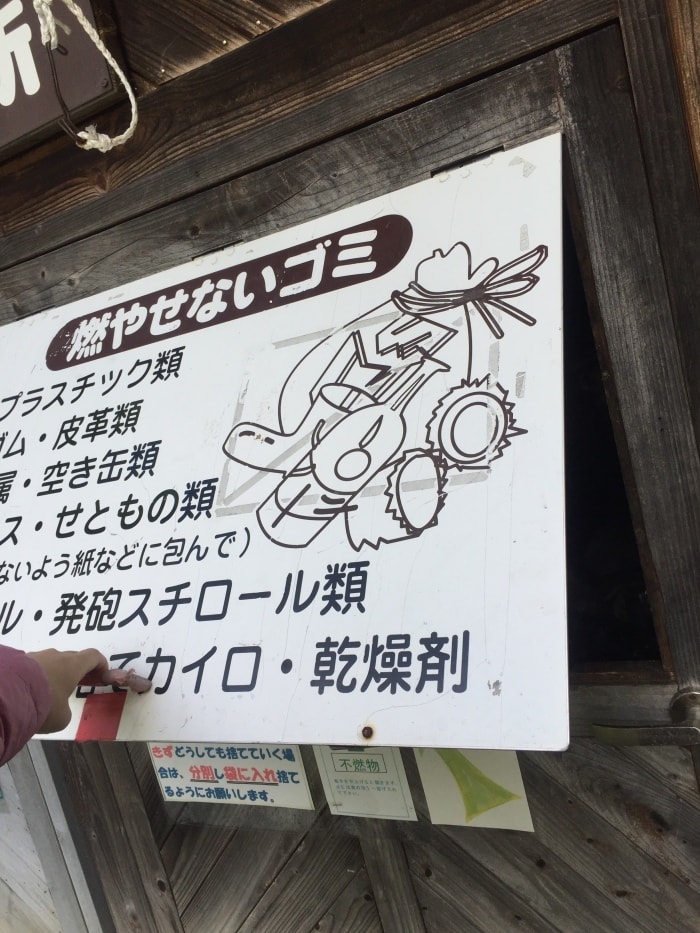 所
燃やせないゴミ
プラスチック類
ゴム・皮革類
属・空き缶類
ス・せともの類
ないよう紙などに包んで）
ル・発砲スチロール類
てカイロ・乾燥剤
きずどうしても捨てていく場
合は、分別し袋に入れ捨て
るようにお願いします。
不燃物